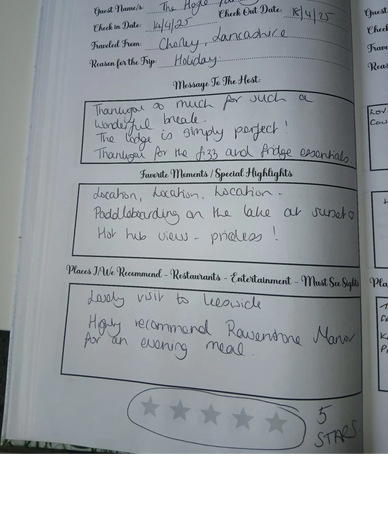 Guest Name/s: The Hogle
Check in Date: 14/4/25 Check Out Date: 18/4/25
Traveled From: Chorley, Lancashire
Reason for the Trip: Holiday
Message To The Host:
Thankyou so much for such a
wonderful break.
The Lodge is simply perfect!
Thankyou for the fizz and fridge essentials
Favorite Moments / Special Highlights
Location, Location, Location -
Paddleboarding on the lake at sunset
Hot tub views - priceless!
Places I/We Recommend - Restaurants - Entertainment - Must See Sights
Lovely visit to Keswick
Highly recommend Ravenstone Manor
for an evening meal.
5
STARS